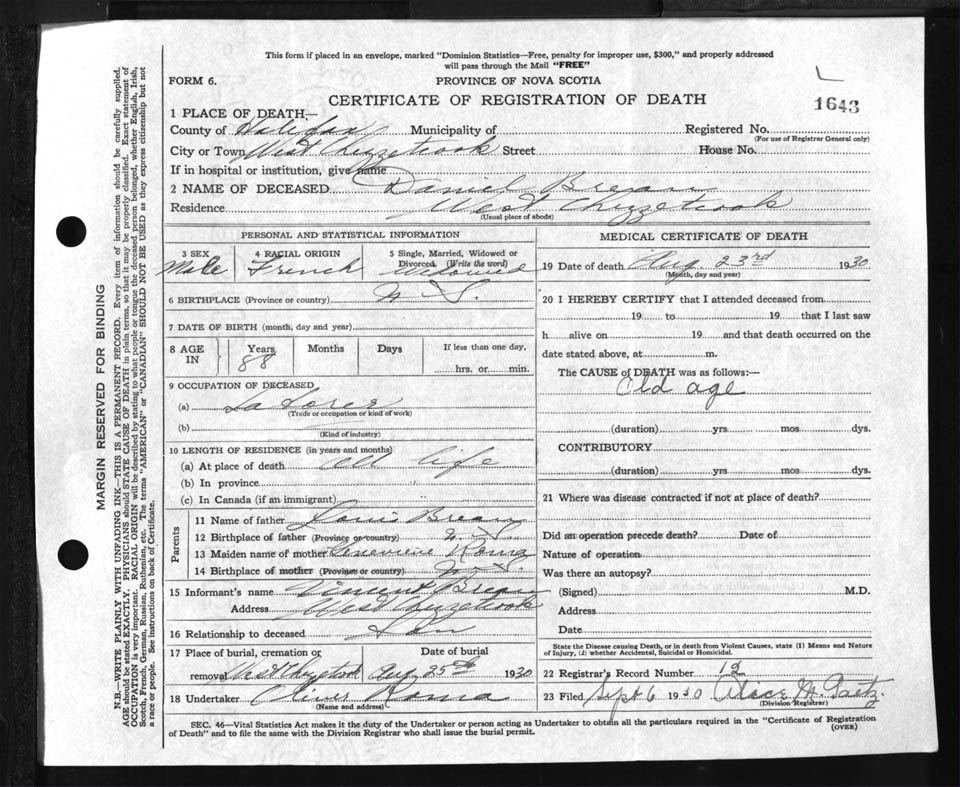 This form if placed in an envelope, marked "Dominion Statistics—Free, penalty for improper use, $300," and properly addressed
will pass through the Mail "FREE"
FORM 6.
PROVINCE OF NOVA SCOTIA
CERTIFICATE OF REGISTRATION OF DEATH
1643
1 PLACE OF DEATH,—
County of Halifax Municipality of Registered No.
(For use of Registrar General only)
City or Town West Chezzetcook Street House No.
If in hospital or institution, give name
2 NAME OF DECEASED Daniel Breau
Residence West Chezzetcook
(Usual place of abode)
PERSONAL AND STATISTICAL INFORMATION
3 SEX 4 RACIAL ORIGIN 5 Single, Married, Widowed or
Divorced (Write the word)
Male French Widowed
6 BIRTHPLACE (Province or country) N. S.
7 DATE OF BIRTH (month, day and year)
8 AGE IN Years Months Days If less than one day,
88 hrs. or min.
9 OCCUPATION OF DECEASED
(a) Laborer
(Trade or occupation or kind of work)
(b)
(Kind of industry)
10 LENGTH OF RESIDENCE (in years and months)
(a) At place of death all life
(b) In province
(c) In Canada (if an immigrant)
Parents
11 Name of father Louis Breau
12 Birthplace of father (Province or country) N. S.
13 Maiden name of mother Genevieve
14 Birthplace of mother (Province or country) N. S.
15 Informant's name Vincent Breau
Address West Chezzetcook
16 Relationship to deceased Son
17 Place of burial, cremation or removal Date of burial
West Chezzetcook Aug 25th 1930
18 Undertaker Oliver Roma
(Name and address)
MEDICAL CERTIFICATE OF DEATH
19 Date of death Aug 23rd 1930
(Month, day and year)
20 I HEREBY CERTIFY that I attended deceased from
19 to 19 that I last saw
h alive on 19 and that death occurred on the
date stated above, at m.
The CAUSE of DEATH was as follows:—
Old age
(duration) yrs mos dys.
CONTRIBUTORY
(duration) yrs mos dys.
21 Where was disease contracted if not at place of death?
Did an operation precede death? Date of
Nature of operation
Was there an autopsy?
(Signed) M.D.
Address
Date
State the Disease causing Death, or in death from Violent Causes, state (1) Means and Nature
of Injury, (2) whether Accidental, Suicidal or Homicidal.
22 Registrar's Record Number 12
23 Filed Sept 6 1930 Alice H. Gaetz
(Division Registrar)
SEC. 46—Vital Statistics Act makes it the duty of the Undertaker or person acting as Undertaker to obtain all the particulars required in the "Certificate of Registration
of Death" and to file the same with the Division Registrar who shall issue the burial permit.
(OVER)
MARGIN RESERVED FOR BINDING
N.B.—WRITE PLAINLY WITH UNFADING INK—THIS IS A PERMANENT RECORD. Every item of information should be carefully supplied.
AGE should be stated EXACTLY. PHYSICIANS should STATE CAUSE OF DEATH in plain terms, so that it may be properly classified. Exact statement of
OCCUPATION is very important. RACIAL ORIGIN will be described by stating to what people or tongue the deceased person belonged, whether English, Irish,
Scotch, French, German, Russian, Ruthenian, etc. The terms "AMERICAN" or "CANADIAN" SHOULD NOT BE USED as they express citizenship but not
a race or people. See instructions on back of Certificate.